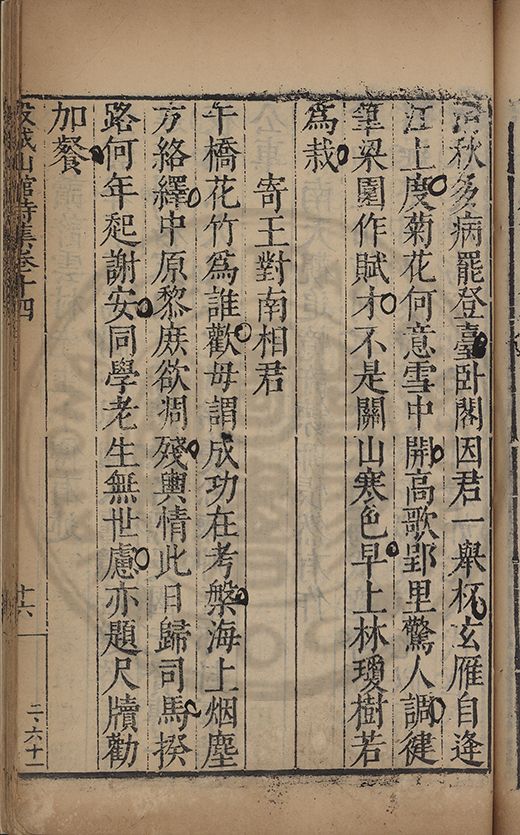 秋多病罷登臺卧閣因君一舉杯玄雁自逢
江上度菊花何意雪中開高歌郢里驚人調徤
筆梁園作賦才不是關山寒色早上林瓊樹若
為栽
寄王對南相君
午橋花竹為誰歡毋謂成功在考槃海上烟塵
方絡繹中原黎庶欲凋殘輿情此日歸司馬揆
路何年起謝安同學老生無世慮亦題尺牘勸
加餐
穀城山館詩集卷十四
十六
二、六十一